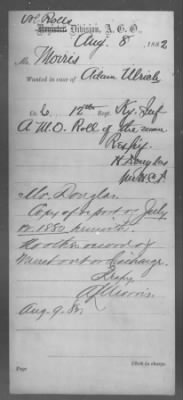 Vol Rolls
Division, A. G. O.
Aug. 8, 1882
Mr. Morris
Wanted in case of Adam Ulrich
Co. E. 12th Regt. Ky. Inf
A M.O. Roll of this man
Respy.
Mr. Douglas
Copy of report of July
12. 1880 herewith.
No other record of
Muster out or discharge.
Respy
Aug. 9. 82.
Page Clerk